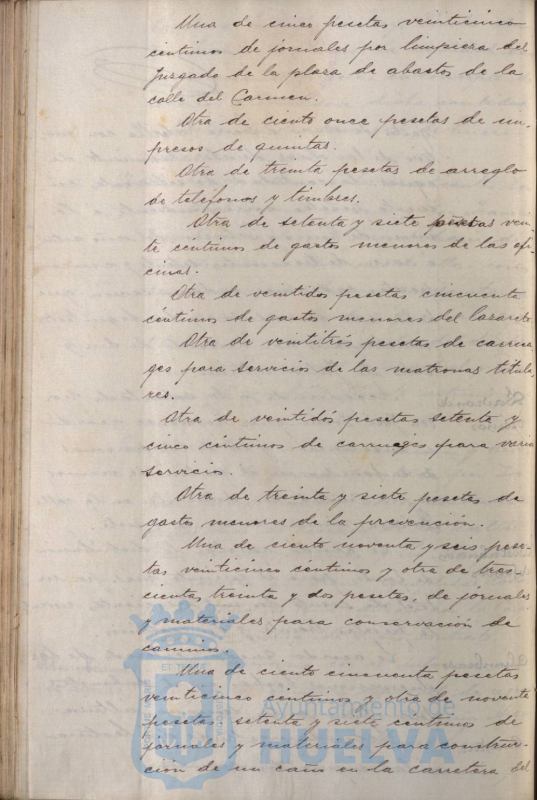 Una de cinco pesetas veinticinco
centimos de jornales por limpieza del
juzgado de la plaza de abastos de la
calle del Carmen.
Otra de ciento once pesetas de im-
presos de quintas.
Otra de treinta pesetas de arreglo
de teléfonos y timbres.
Otra de setenta y siete pesetas vein-
te céntimos de gastos menores de las ofi-
cinas.
Otra de veintidos pesetas cincuenta
céntimos de gastos menores del lazareto
Otra de veintitrés pesetas de carrua-
ges para servicios de las matronas titula-
res.
Otra de veintidós pesetas setenta y
cinco céntimos de carruages para varios
servicio.
Otra de treinta y siete pesetas de
gastos menores de la prevención.
Una de ciento noventa y seis pese-
tas veinticinco céntimos y otra de tres-
cientas treinta y dos pesetas, de jornales
y materiales para conservación de
caminos.
Una de ciento cincuenta pesetas
veinticinco céntimos y otra de noventa
pesetas setenta y siete centimos de
jornales y materiales para construc-
ción de un caño en la carretera del
Ayuntamiento de
HUELVA